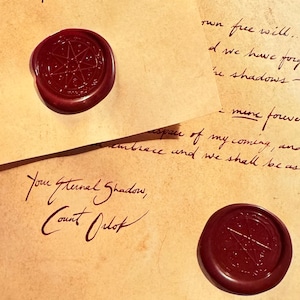 own free will...
d we have forg
're shadows –
– mine forever
of my coming, and
embrace and we shall be as
Your Eternal Shadow,
Count Orlok